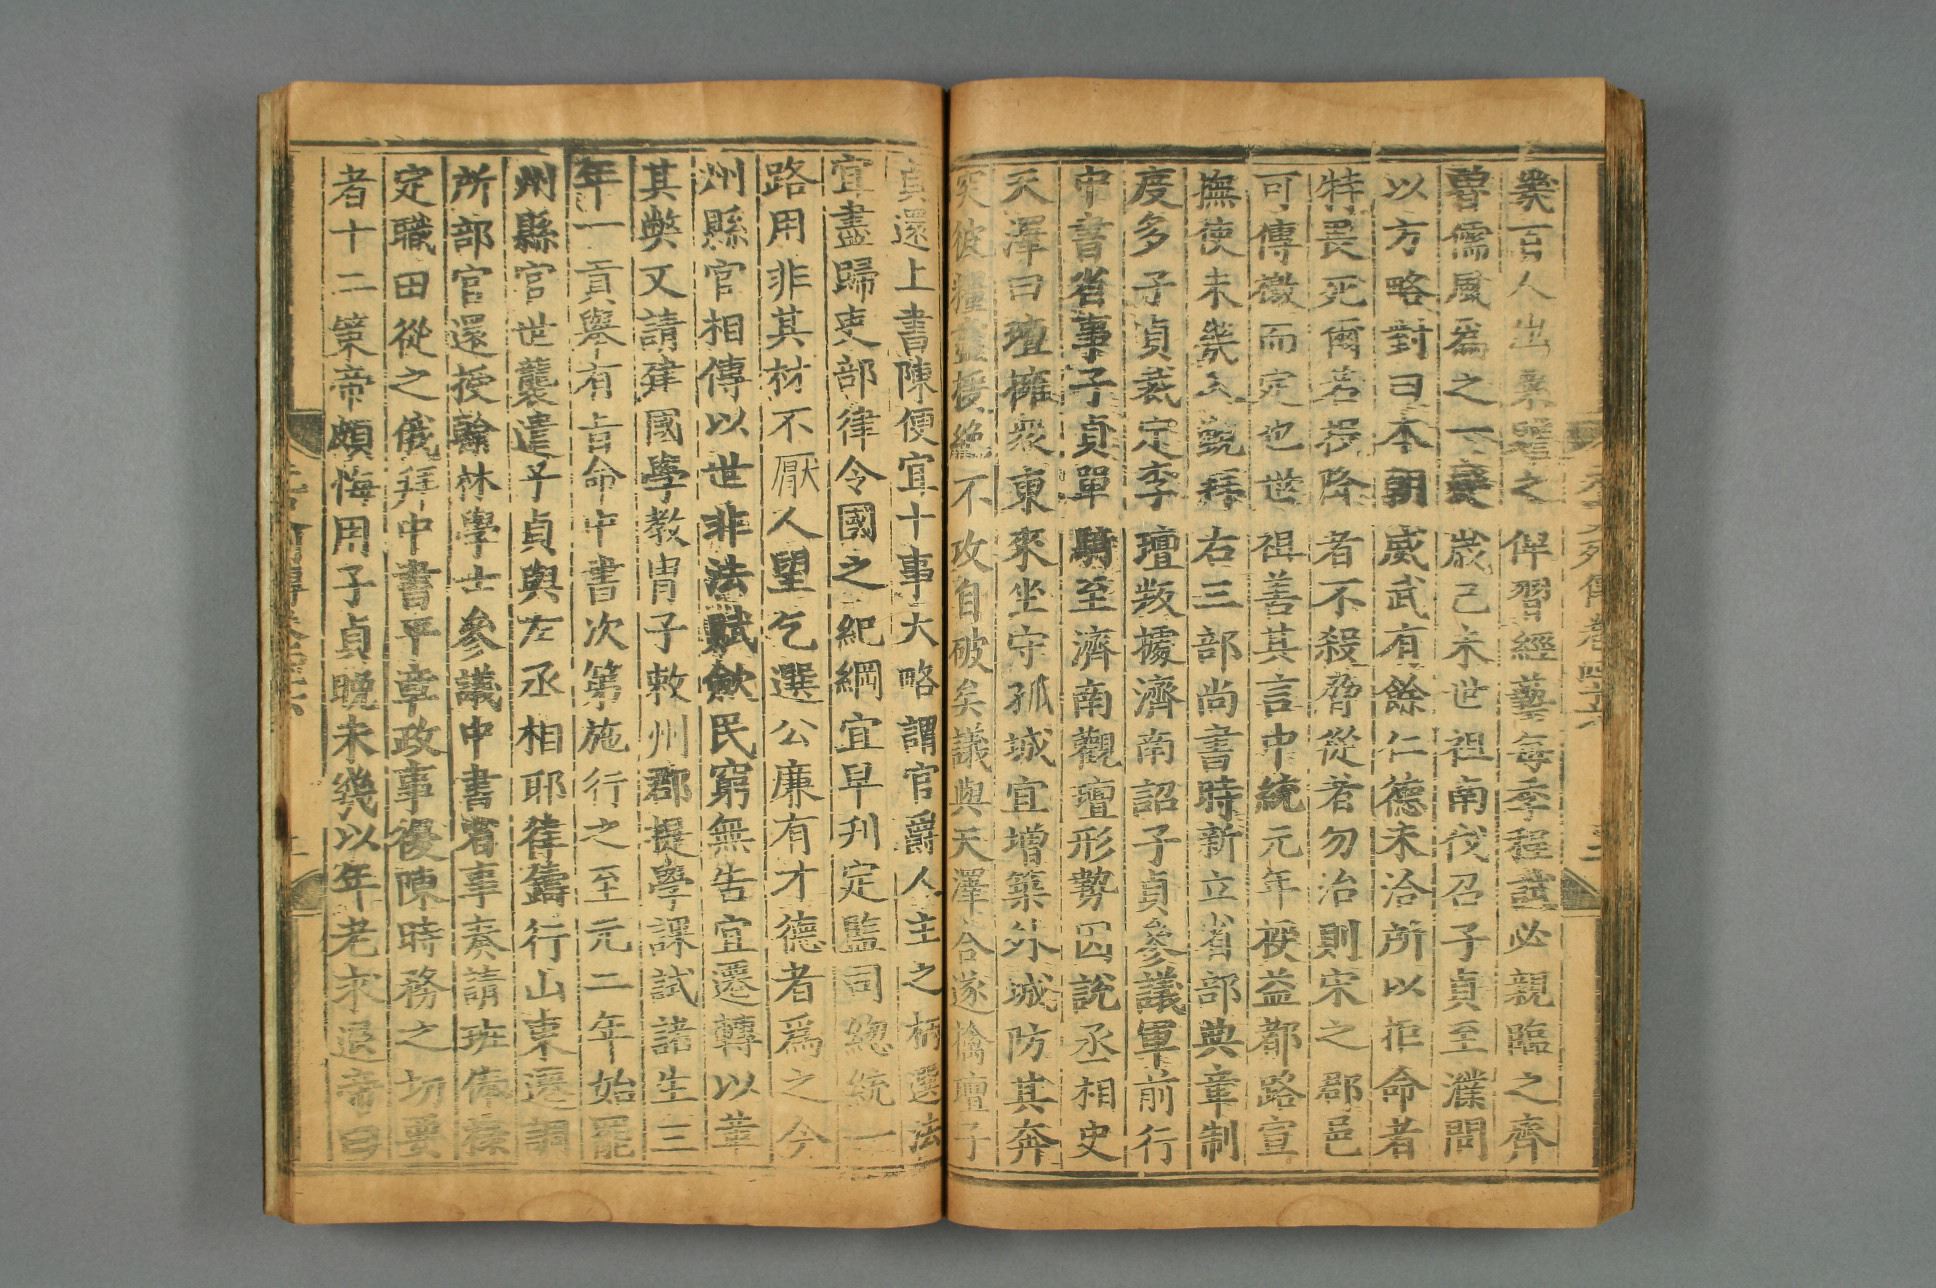 幾百人出粟贍之俾習經藝每季程試必親臨之齊
魯儒風爲之一變歲己未世祖南伐召子貞至濮問
以方略對曰本朝威武有餘仁德未洽所以拒命者
特畏死爾若投降者不殺脅從者勿治則宋之郡邑
可傳檄而定也世祖善其言中統元年授益都路宣
撫使未幾入覲拜右三部尚書時新立省部典章制
度多子貞裁定李璮叛據濟南詔子貞參議軍前行
中書省事子貞單騎至濟南觀璮形勢因說丞相史
天澤曰璮擁衆東來坐守孤城宜增築外城防其奔
突彼糧盡援絕不攻自破矣議與天澤合遂擒璮子
貞還上書陳便宜十事大略謂官爵人主之柄選法
宜盡歸吏部律令國之紀綱宜早刋定監司總統一
路用非其材不厭人望乞選公廉有才德者爲之今
州縣官相傳以世非法賦斂民窮無告宜遷轉以革
其弊又請建國學教胄子敕州郡提學課試諸生三
年一貢舉有旨命中書次第施行之至元二年始罷
州縣官世襲遣子貞與左丞相耶律鑄行山東遷調
所部官還授翰林學士參議中書省事奏請班俸祿
定職田從之俄拜中書平章政事復陳時務之切要
者十二策帝頗悔用子貞晚未幾以年老求退帝曰